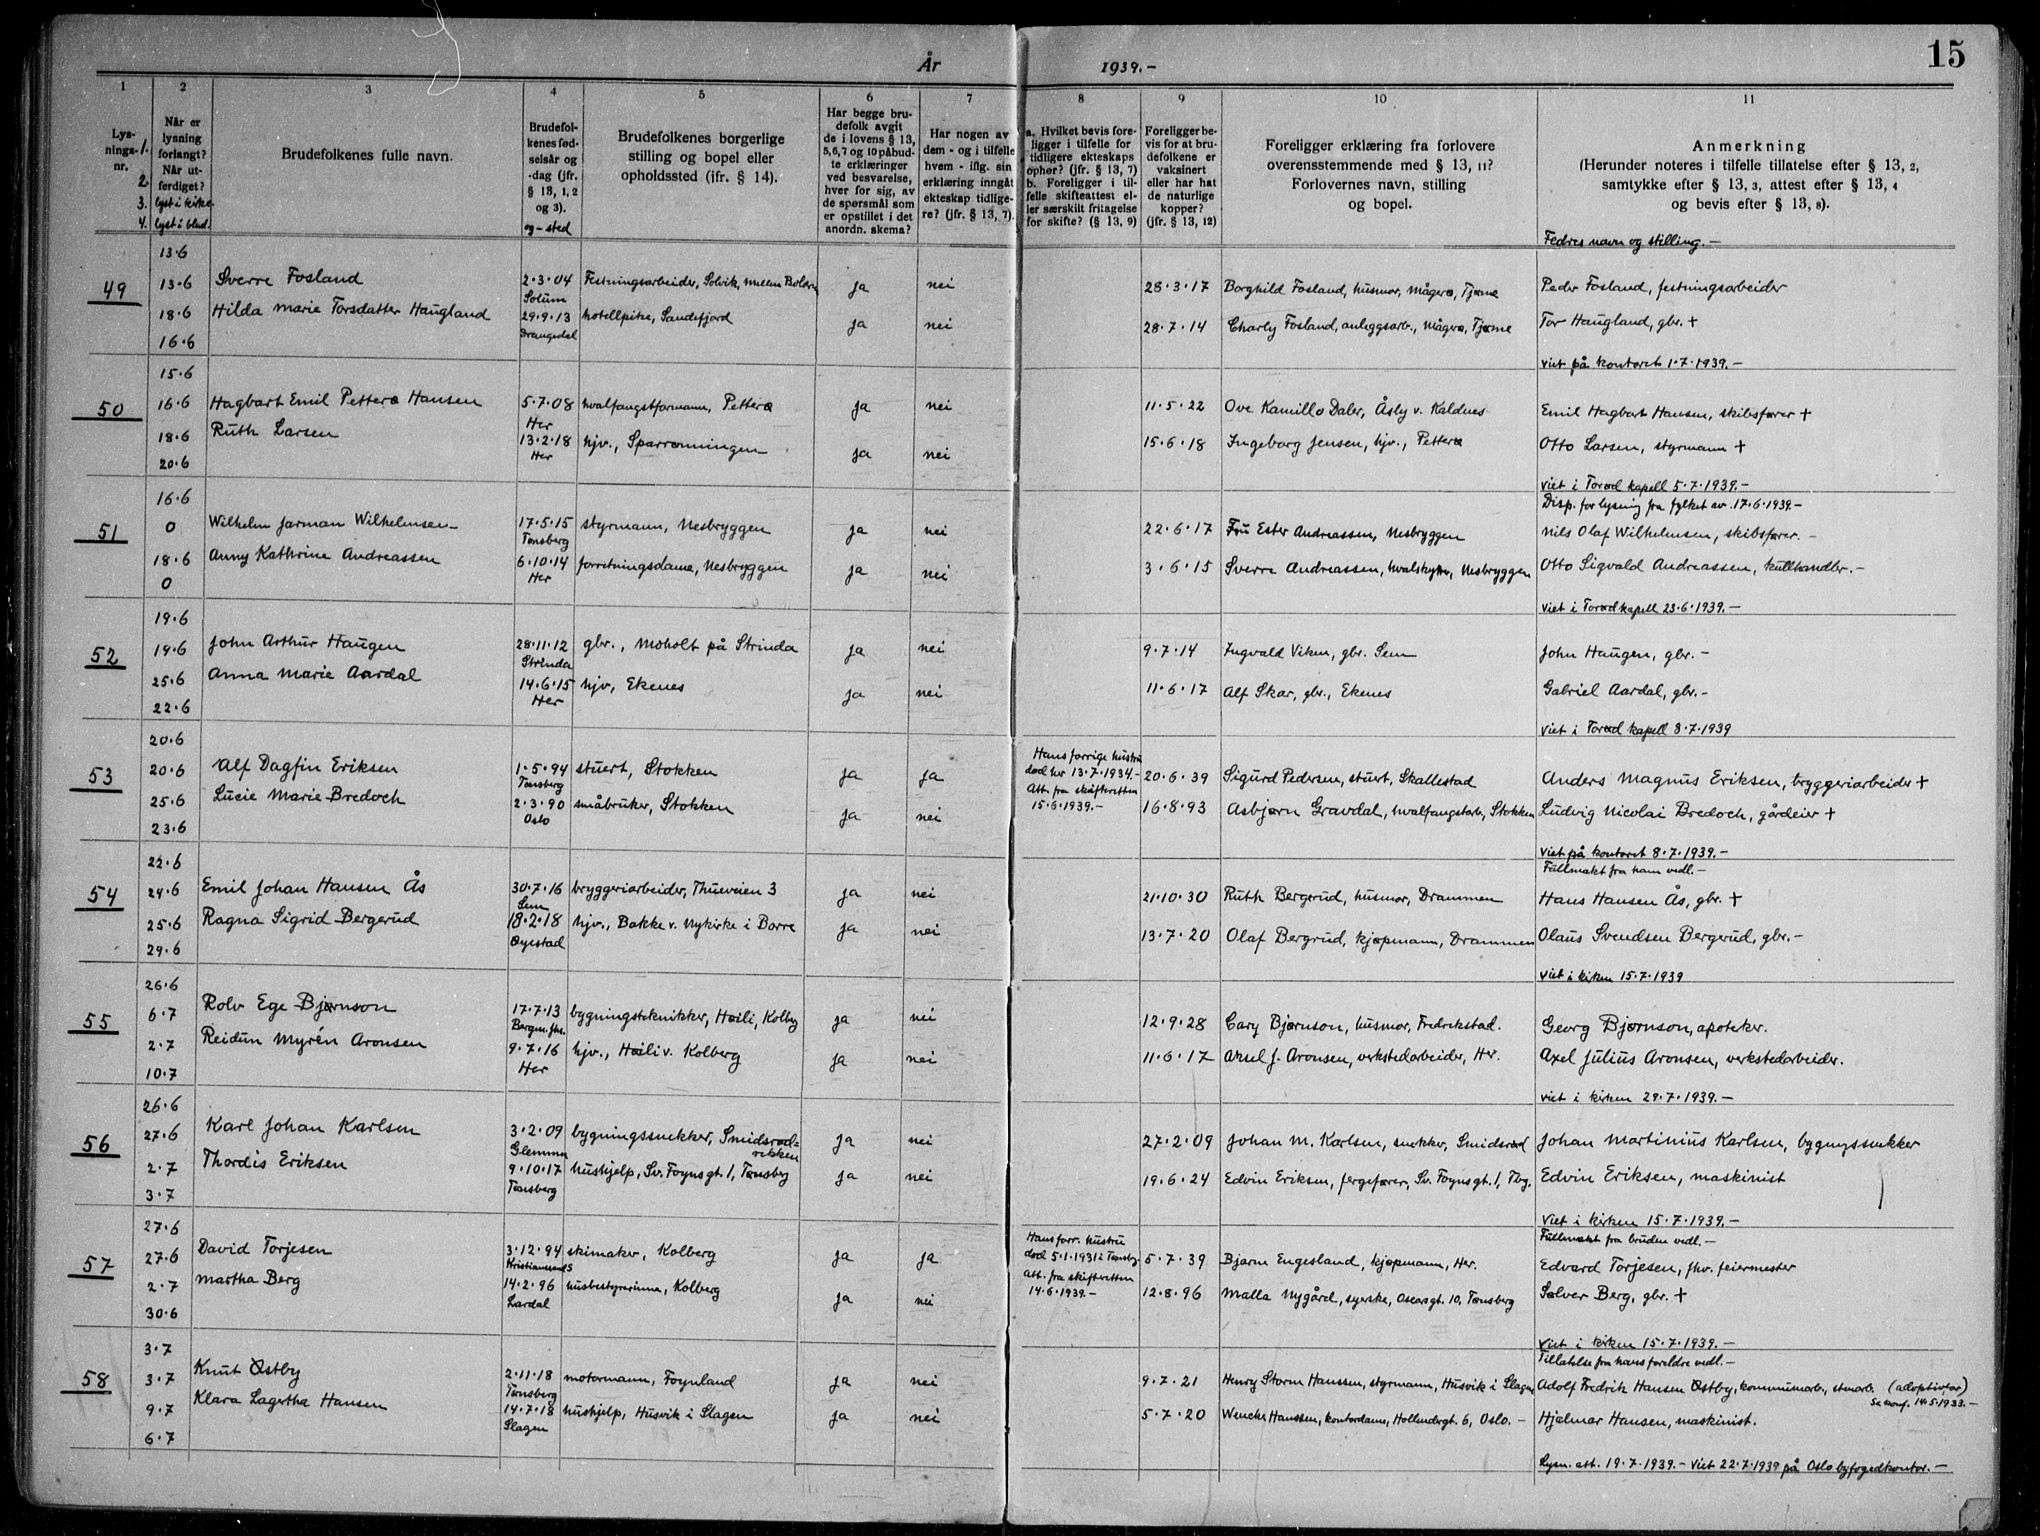 År 1939.-
15
1 2 3 4 5 6 7 8 9 10 11
Lysningsnr. 1. 2 3. 4.
Når er lysning forlangt? Når utferdiget? lyst i kirke. lyst i blad.
Brudefolkenes fulle navn.
Brudefolkenes fødselsår og -dag (jfr. § 13, 1, 2 og 3). og - sted
Brudefolkenes borgerlige stilling og bopel eller opholdssted (ifr. § 14).
Har begge brudefolk avgit de i lovens § 13, 5, 6, 7 og 10 påbudte erklæringer ved besvarelse, hver for sig, av de spørsmål som er opstillet i det anordn. skema?
Har nogen av dem - og i tilfelle hvem - iflg. sin erklæring inngått ekteskap tidligere? (jfr. § 13, 7).
a. Hvilket bevis foreligger i tilfelle for tidligere ekteskaps ophør? (jfr. § 13, 7) b. Foreligger i tilfelle skifteattest eller særskilt fritagelse for skifte? (§ 13, 9)
Foreligger bevis for at brudefolkene er vaksinert eller har hat de naturlige kopper? (jfr. § 13, 12)
Foreligger erklæring fra forlovere overensstemmende med § 13, 11? Forlovernes navn, stilling og bopel.
Anmerkning (Herunder noteres i tilfelle tillatelse efter § 13, 2, samtykke efter § 13, 3, attest efter § 13, 4 og bevis efter § 13, 8).
Fedres navn og stilling.-
13.6
49 13.6 Sverre Fosland 2.3.04 Solum Festningsarbeider, Solvik, mellem Bolærn ja nei 28.3.17 Borghild Fosland, husmor, Mågerø, Tjøme Peder Fosland, festningsarbeider
18.6 Hilda Marie Torsdatter Haugland 29.9.13 Drangedal hotellpike, Sandefjord ja nei 28.7.14 Charly Fosland, anleggsarb., Mågerø, Tjøme Tor Haugland, gbr. +
16.6 Viet på kontoret 1.7.1939.-
15.6
50 16.6 Hagbart Emil Petterø Hansen 5.7.08 Her hvalfangstformann, Petterø ja nei 11.5.22 Ove Kamillo Daler, Åsly v. Kaldnes Emil Hagbart Hansen, skibsfører +
18.6 Ruth Larsen 13.2.18 Her hjv., Sparrenningen ja nei 15.6.18 Ingeborg Jensen, hjv., Petterø Otto Larsen, styrmann +
20.6 Viet i Torød kapell 5.7.1939.-
16.6 Disp. for lysning fra fylket av 17.6.1939.-
51 0 Wilhelm Jarman Wilhelmsen 17.5.15 Tønsberg styrmann, Nesbryggen ja nei 22.6.17 Fru Ester Andreassen, Nesbryggen Nils Olaf Wilhelmsen, skibsfører.-
18.6 Anny Kathrine Andreassen 6.10.14 Her forretningsdame, Nesbryggen ja nei 3.6.15 Sverre Andreassen, hvalskytter, Nesbryggen Otto Sigvald Andreassen, kullhandler.-
0 Viet i Torød kapell 23.6.1939.-
19.6
52 19.6 John Arthur Haugen 28.11.12 Strinda gbr., Moholt på Strinda ja nei 9.7.14 Ingvald Viken, gbr. Sem John Haugen, gbr.-
25.6 Anna Marie Aardal 14.6.15 Her hjv, Ekenes ja nei 11.6.17 Alf Skar, gbr., Ekenes Gabriel Aardal, gbr.-
22.6 Viet i Torød kapell 8.7.1939
20.6
53 20.6 Alf Dagfin Eriksen 1.5.94 Tønsberg stuert, Stokken ja ja Hans forrige hustru død her 13.7.1934.- Att. fra skifteretten 15.6.1939.- 20.6.39 Sigurd Pedersen, stuert, Skallestad Anders Magnus Eriksen, bryggeriarbeider +
25.6 Lucie Marie Bredoch 2.3.90 Oslo småbruker, Stokken ja nei 16.8.93 Asbjørn Gravdal, hvalfangstarb, Stokken Ludvig Nicolai Bredoch, gårdeier +
23.6 Viet på kontoret 8.7.1939.-
22.6 Fullmakt fra ham vedl.-
54 24.6 Emil Johan Hansen Ås 30.7.16 Sem bryggeriarbeider, Thueveien 3 ja nei 21.10.30 Ruth Bergerud, husmor, Drammen Hans Hansen Ås, gbr. +
25.6 Ragna Sigrid Bergerud 18.2.18 Øyestad hjv., Bakke v. Nykirke i Borre ja nei 13.7.20 Olaf Bergrud, kjøpmann, Drammen Olaus Svendsen Bergerud, gbr.-
29.6 Viet i kirken 15.7.1939
26.6
55 6.7 Rolv Ege Bjørnson 17.7.13 Bergen bygningstekniker, Heili, Kolberg ja nei 12.9.28 Cary Bjørnson, husmor, Fredrikstad. Georg Bjørnson, apoteker.
2.7 Reidun Myrén Aronsen 9.7.16 Her hjv., Heili v. Kolberg ja nei 11.6.17 Aksel J. Aronsen, verkstedarbeider, Her. Axel Julius Aronsen, verkstedarbeider.
10.7 Viet i kirken 29.7.1939.-
26.6
56 27.6 Karl Johan Karlsen 3.2.09 Glemmen bygningssnekker, Smidsrødvikken ja nei 27.2.09 Johan M. Karlsen, snekker, Smidsrød Johan Martinius Karlsen, bygningssnekker
2.7 Thordis Eriksen 9.10.17 Tønsberg hushjelp, Sv. Foynsgt. 1, Tønsberg ja nei 19.6.24 Edvin Eriksen, fergefører, Sv. Foynsgt. 1, Tbg. Edvin Eriksen, maskinist
3.7 Viet i kirken 15.7.1939.-
27.6 Fullmakt fra bruden vedl.-
57 27.6 David Torjesen 3.12.94 Kristiansand S skimaker, Kolberg ja ja Hans forr. hustru død 5.1.1931 i Tønsberg. att. fra skifteretten 14.6.1939.- 5.7.39 Bjarne Engesland, kjøpmann, Her. Edvard Torjesen, fhv. feiermester
2.7 Martha Berg 14.2.96 Lardal husbestyrerinne, Kolberg ja nei 12.8.96 Malla Nygård, syerske, Oscarsgt. 10, Tønsberg Sølver Berg, gbr. +
30.6 Viet i kirken 15.7.1939.-
3.7 Tillatelse fra hans foreldre vedl.-
58 3.7 Knut Østby 2.11.18 Tønsberg motormann, Foynland ja nei 9.7.21 Henry Storm Hanssen, styrmann, Husvik i Slagen Adolf Fredrik Hansen Østby, kommunearb., stenarb. (adoptivfar) Se konf. 14.5.1933.-
9.7 Klara Lagertha Hansen 14.7.18 Slagen hushjelp, Husvik i Slagen ja nei 5.7.20 Wencke Hanssen, kontordame, Hollendergt. 6, Oslo.- Hjalmar Hansen, maskinist.
6.7 Lysn. att. 19.7.1939.- Viet 22.7.1939 på Oslo byfogedkontor.-